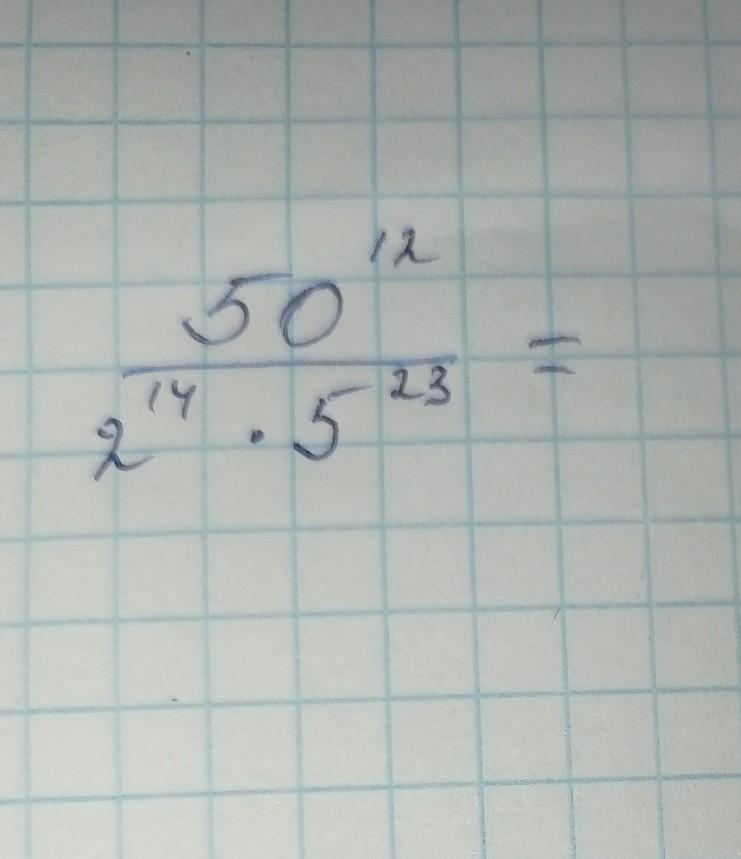 50¹² / 2¹⁴ · 5²³ =